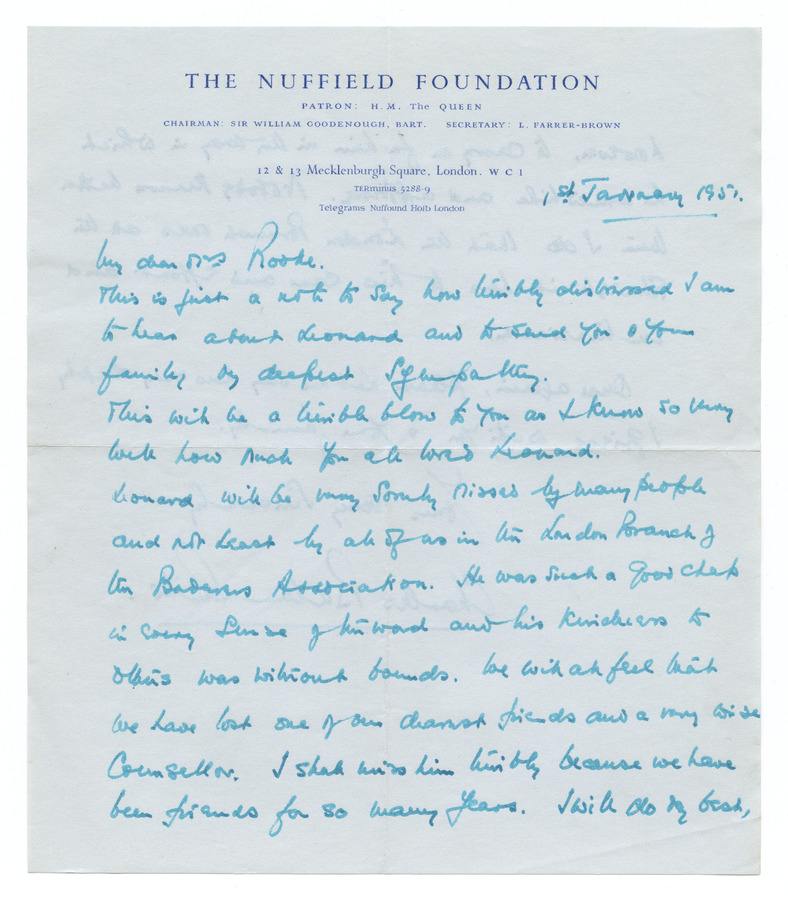 THE NUFFIELD FOUNDATION
PATRON: H.M. The QUEEN
CHAIRMAN: SIR WILLIAM GOODENOUGH, BART. SECRETARY: L. FARRER-BROWN
12 & 13 Mecklenburgh Square, London. W C 1
TERminus 5288-9
Telegrams Nuffound Holb London
1st January 1951.
My dear Mrs Rooke.
This is just a note to say how terribly distressed I am
to hear about Leonard and to send you & your
family my deepest sympathy.
This will be a terrible blow to you as I know so very
well how much you all loved Leonard.
Leonard will be very sorely missed by many people
and not least by all of us in the London Branch of
the Association. He was such a good chap
in every sense of the word and his kindness to
others was without bounds. We will all feel that
we have lost one of our dearest friends and a very wise
Counsellor. I shall miss him terribly because we have
been friends for so many years. I will do my best,